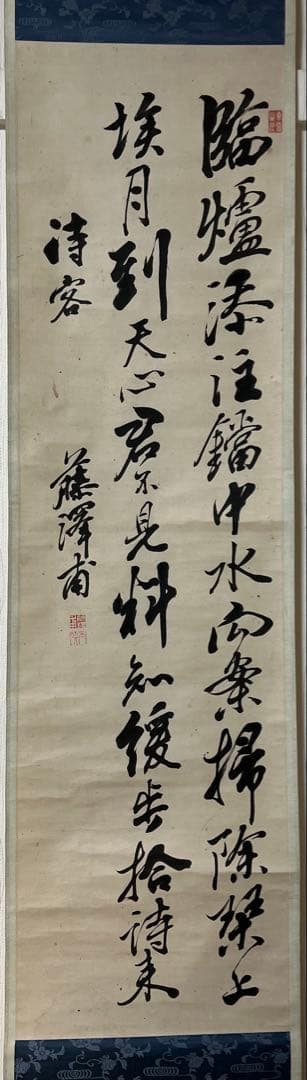 臨爐添注鐺中水向案掃除琹上
埃月到天心君不見料知緩步拾詩来
待客
藤澤甫